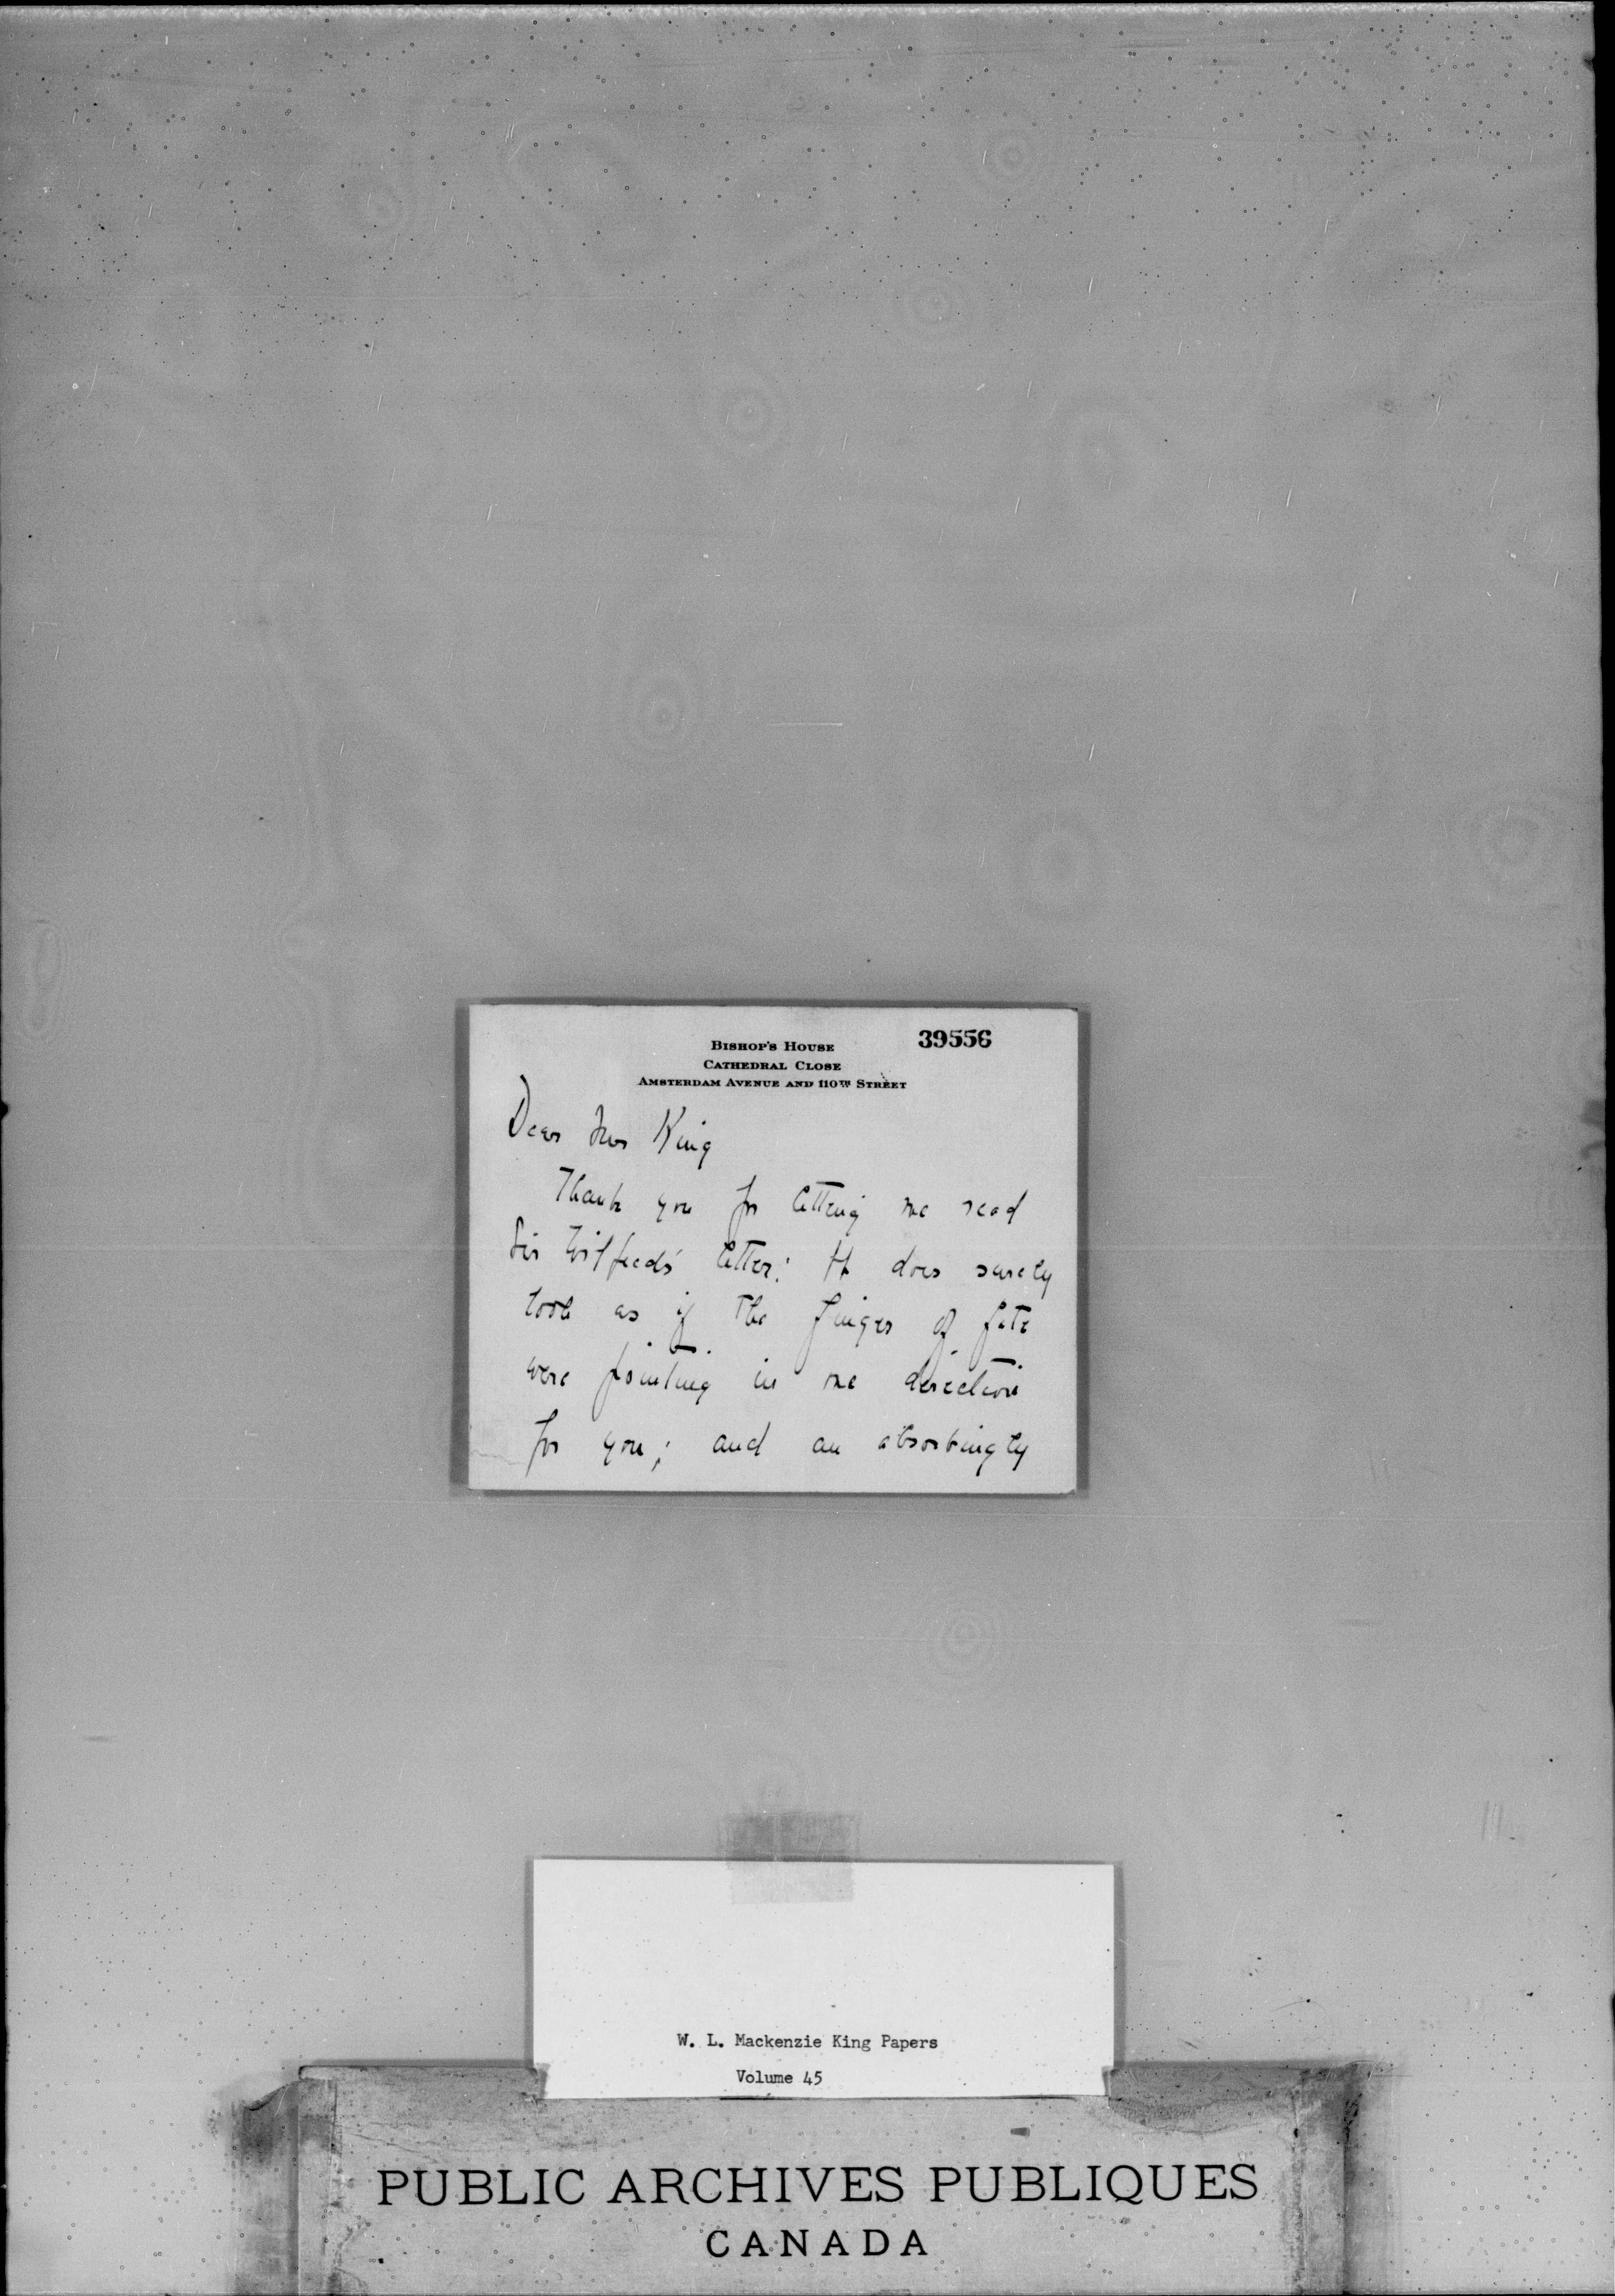 39556
BISHOP'S HOUSE
CATHEDRAL CLOSE
AMSTERDAM AVENUE AND 110TH STREET
Dear King
Thank you for letting me read
Sir Wilfred's letter: It does surely
look as if the finger of fate
were pointing in one direction
for you; and an absorbingly
W. L. Mackenzie King Papers
Volume 45
PUBLIC ARCHIVES PUBLIQUES
CANADA